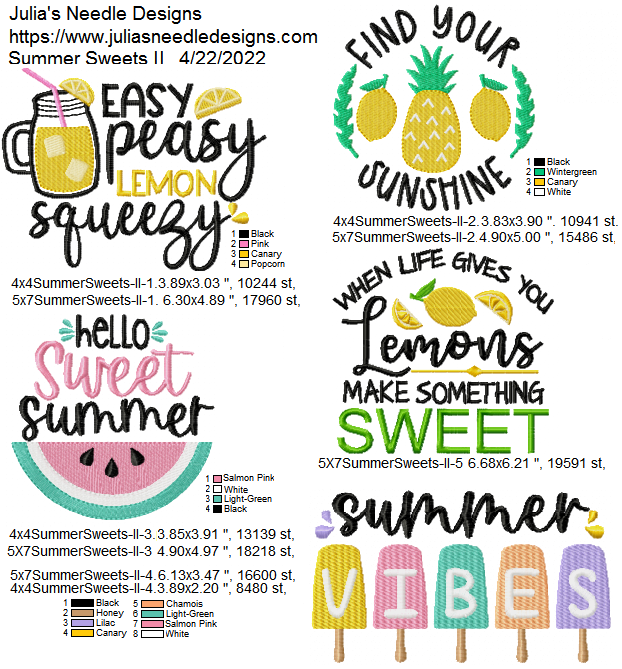 Julia's Needle Designs
https://www.juliasneedledesigns.com
Summer Sweets II   4/22/2022
EASY
peasy
LEMON
squeezy
1 Black
2 Pink
3 Canary
4 Popcorn
4x4SummerSweets-II-1.3.89x3.03 ", 10244 st,
5x7SummerSweets-II-1. 6.30x4.89 ", 17960 st,
FIND YOUR
SUNSHINE
1 Black
2 Wintergreen
3 Canary
4 White
4x4SummerSweets-II-2.3.83x3.90 ". 10941 st.
5x7SummerSweets-II-2.4.90x5.00 ", 15486 st,
hello
Sweet
summer
1 Salmon Pink
2 White
3 Light-Green
4 Black
4x4SummerSweets-II-3.3.85x3.91 ", 13139 st,
5X7SummerSweets-II-3 4.90x4.97 ", 18218 st,
WHEN LIFE GIVES YOU
Lemons
MAKE SOMETHING
SWEET
5X7SummerSweets-II-5 6.68x6.21 ", 19591 st,
5x7SummerSweets-II-4.6.13x3.47 ", 16600 st,
4x4SummerSweets-II-4.3.89x2.20 ", 8480 st,
1 Black
2 Honey
3 Lilac
4 Canary
5 Chamois
6 Light-Green
7 Salmon Pink
8 White
summer
VIBES